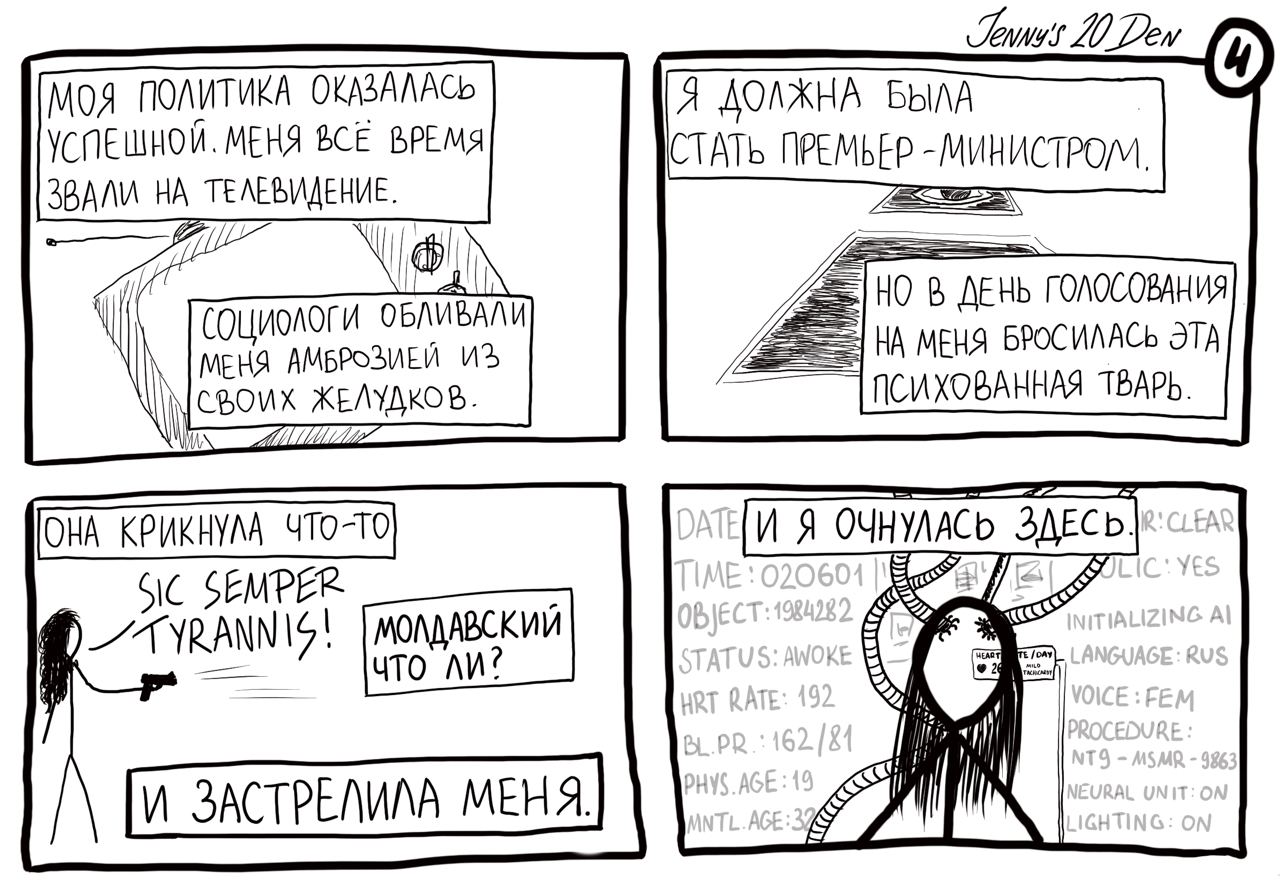 Jenny's 20 Den
4
МОЯ ПОЛИТИКА ОКАЗАЛАСЬ
УСПЕШНОЙ. МЕНЯ ВСЁ ВРЕМЯ
ЗВАЛИ НА ТЕЛЕВИДЕНИЕ.
СОЦИОЛОГИ ОБЛИВАЛИ
МЕНЯ АМБРОЗИЕЙ ИЗ
СВОИХ ЖЕЛУДКОВ.
Я ДОЛЖНА БЫЛА
СТАТЬ ПРЕМЬЕР-МИНИСТРОМ.
НО В ДЕНЬ ГОЛОСОВАНИЯ
НА МЕНЯ БРОСИЛАСЬ ЭТА
ПСИХОВАННАЯ ТВАРЬ.
ОНА КРИКНУЛА ЧТО-ТО
SIC SEMPER
TYRANNIS!
МОЛДАВСКИЙ
ЧТО ЛИ?
И ЗАСТРЕЛИЛА МЕНЯ.
И Я ОЧНУЛАСЬ ЗДЕСЬ.
DATE
TIME: 020601
OBJECT: 1984282
STATUS: AWOKE
HRT RATE: 192
BL.PR.: 162/81
PHYS. AGE: 19
MNTL. AGE: 32
HEART
TE/DAY
26
MILD
TACHICARDY
CLEAR
YES
INITIALIZING AI
LANGUAGE: RUS
VOICE: FEM
PROCEDURE:
NT9-MSMR-9863
NEURAL UNIT: ON
LIGHTING: ON